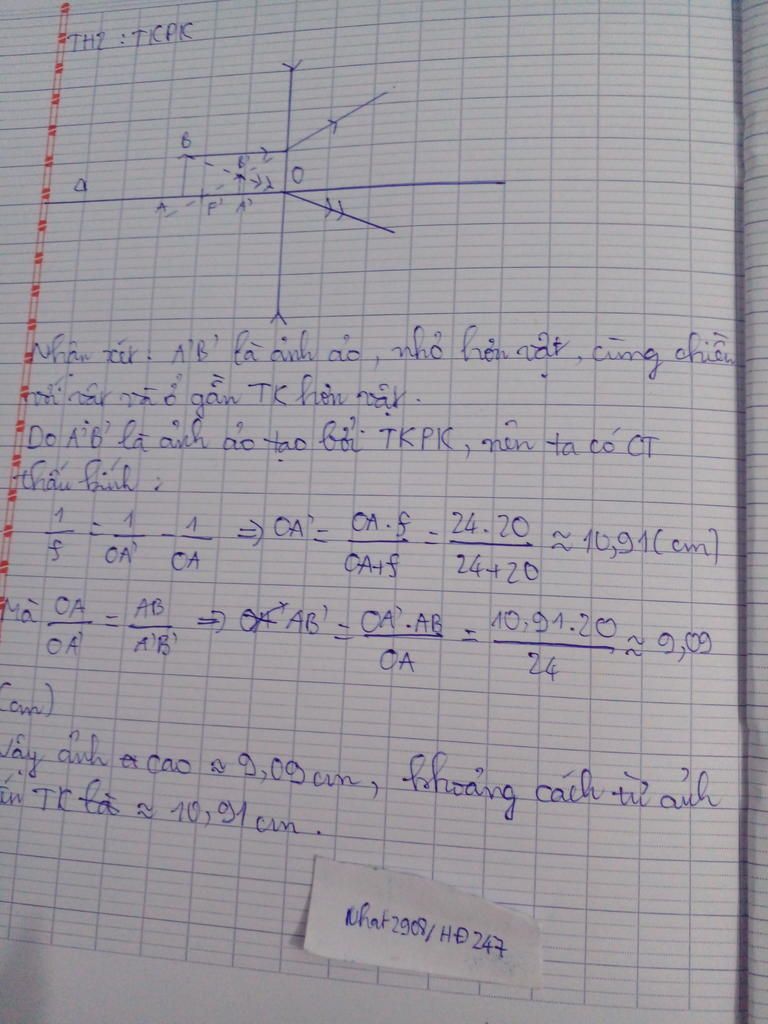 TH2 : TKPK
B
B'
O
Δ
A F' A'
Nhận xét : A'B' là ảnh ảo, nhỏ hơn vật, cùng chiều
với vật và ở gần TK hơn vật.
Do A'B' là ảnh ảo tạo bởi TKPK, nên ta có CT
thấu kính :
1/f = 1/OA' - 1/OA => OA' = OA.f/OA+f = 24.20/24+20 ≈ 10,91(cm)
Mà OA/OA' = AB/A'B' => AB' = OA'.AB/OA = 10,91.20/24 ≈ 9,09
(cm)
Vậy ảnh cao ≈ 9,09cm, khoảng cách từ ảnh
đến TK là ≈ 10,91cm.
Nhat2908/HĐ247